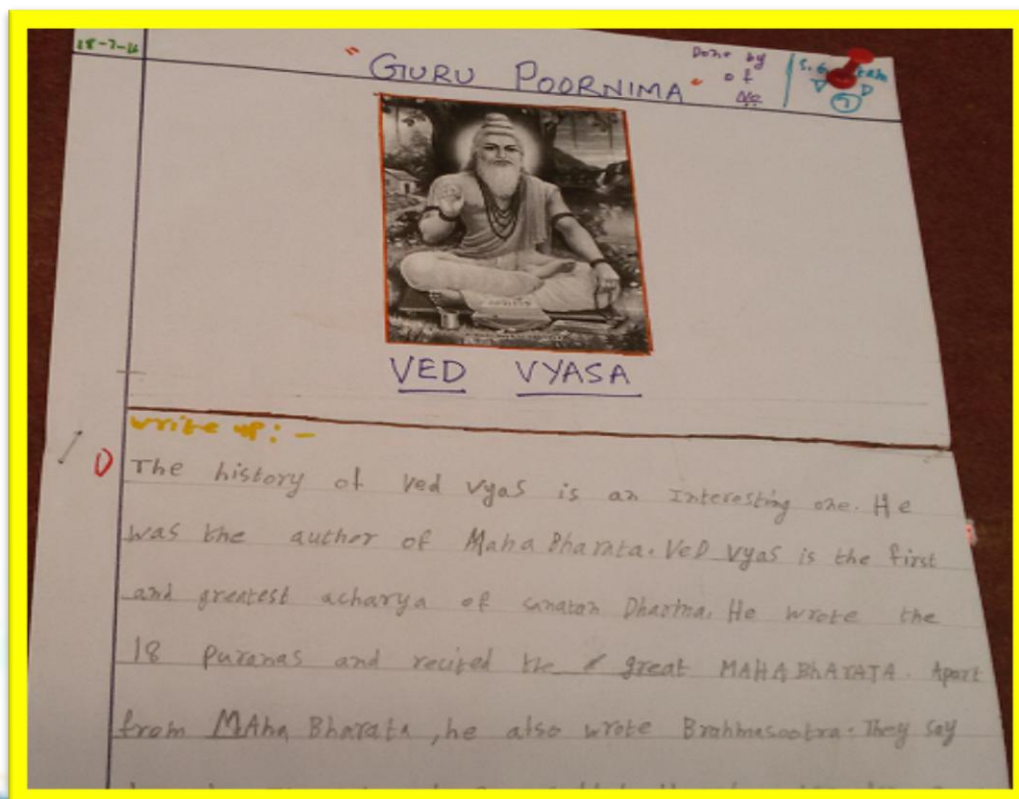 "GURU POORNIMA"
Done by
of
V D
7
VED VYASA
write up:-
1) The history of Ved Vyas is an Interesting one. He
was the author of Maha Bharata. VeD Vyas is the first
and greatest acharya of sanatan Dharma. He wrote the
18 Puranas and recited the great MAHABhARATA. Apart
from MAha Bharata, he also wrote Brahmasootra. They say